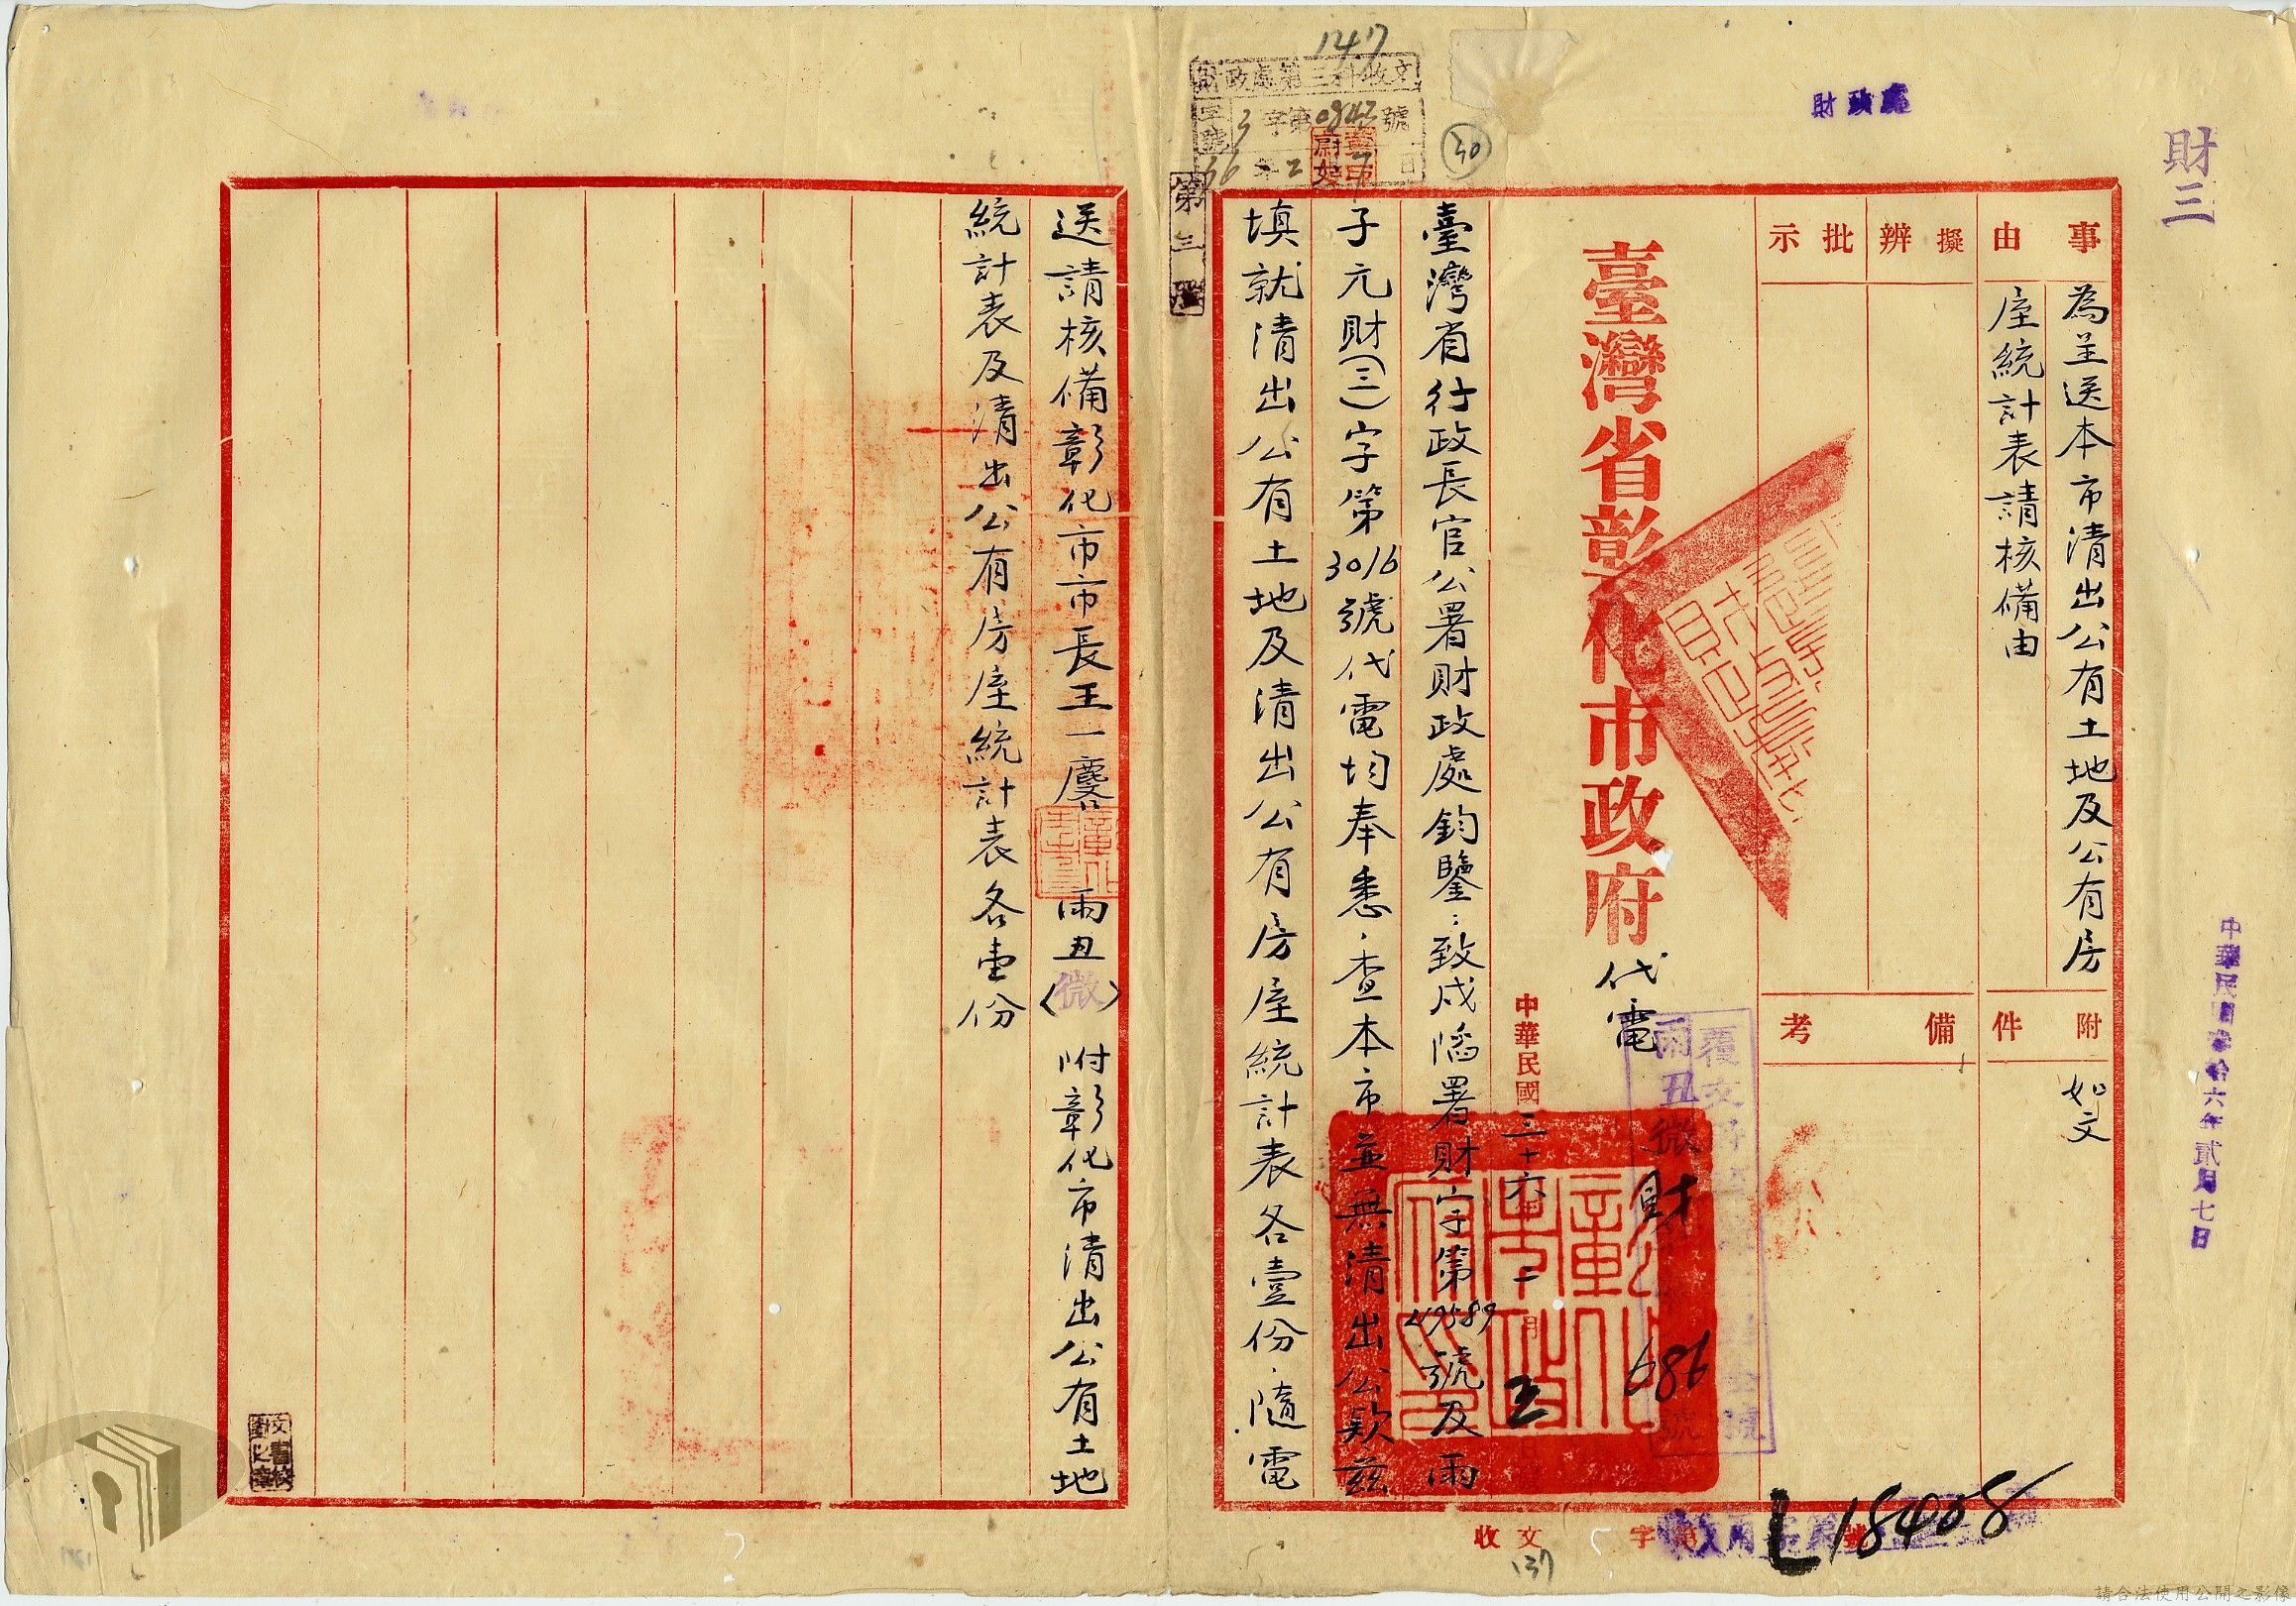 財三
財政處
中華民國叁拾六年貳月七日
事由
為呈送本市清出公有土地及公有房
屋統計表請核備由
附件
如文
擬辦
批示
備考
臺灣省彰化市政府
代電
覆文
雨丑微
財
686
號
中華民國三十六年二月 日
臺灣省行政長官公署財政處鈞鑒:致戌 署財字第49589號及雨
子元財(三)字第3016號代電均奉悉.查本市並無清出公款茲
填就清出公有土地及清出公有房屋統計表各壹份.隨電
送請核備彰化市市長王一麐 雨丑(微) 附彰化市清出公有土地
統計表及清出公有房屋統計表各壹份
147
財政處第三科收文
字號 3字第0843號
36年2月7日
30
第三股
收文 字第 號
L18408
137
文書校對之章
請合法使用公開之影像